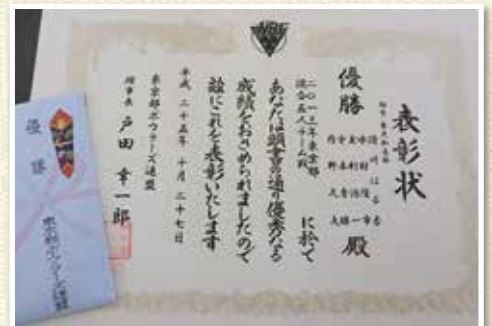 表彰状
優勝
殿
二〇一三年東京都
混合五人チーム戦
に於て
あなたは頭書の通り優秀なる
成績をおさめられましたので
茲にこれを表彰いたします
平成二十五年十月二十七日
東京都ボウラーズ連盟
理事長 戸田幸一郎
優勝
東京都ボウラーズ連盟